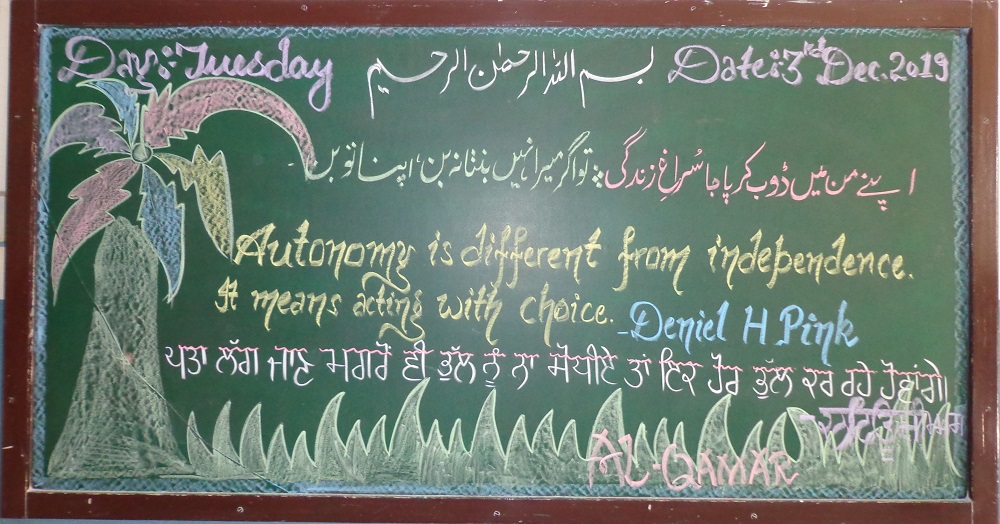 Day: Tuesday
بسم اللہ الرحمٰن الرحیم
Date: 3rd Dec. 2019
اپنے من میں ڈوب کر پا جا سُراغِ زندگی ؛ تو اگر میرا نہیں بنتا نہ بن، اپنا تو بن
Autonomy is different from independence.
It means acting with choice.
-Deniel H Pink
ਪਤਾ ਲੱਗ ਜਾਣ ਮਗਰੋਂ ਵੀ ਭੁੱਲ ਨੂੰ ਨਾ ਸੋਧੀਏ ਤਾਂ ਇਕ ਹੋਰ ਭੁੱਲ ਕਰ ਰਹੇ ਹੋਵਾਂਗੇ।
AL-QAMAR